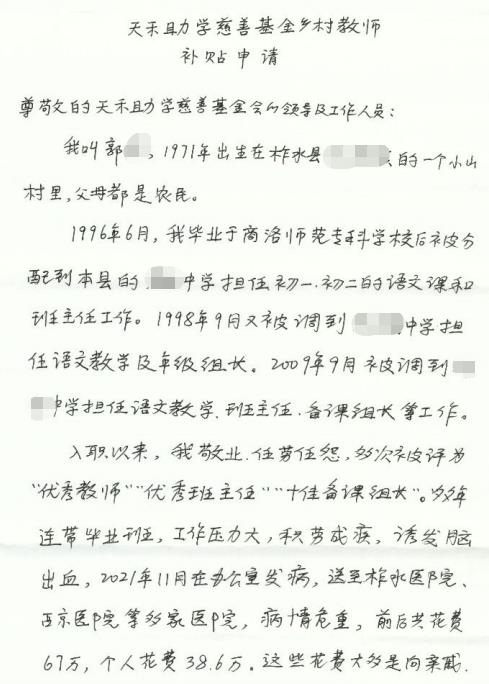 天禾助学慈善基金乡村教师
补贴申请
尊敬的天禾助学慈善基金会的领导及工作人员：
我叫郭，1971年出生在柞水县的一个小山
村里，父母都是农民。
1996年6月，我毕业于商洛师范专科学校后被分
配到本县的中学担任初一.初二的语文课和
班主任工作。1998年9月又被调到中学担
任语文教学及年级组长。2009年9月被调到
中学担任语文教学.班主任.备课组长等工作。
入职以来，我敬业.任劳任怨，多次被评为
“优秀教师”“优秀班主任”“十佳备课组长”。多年
连带毕业班，工作压力大，积劳成疾，诱发脑
出血，2021年11月在办公室发病，送至柞水医院、
西京医院等多家医院，病情危重，前后共花费
67万，个人花费38.6万。这些花费大多是向亲戚.